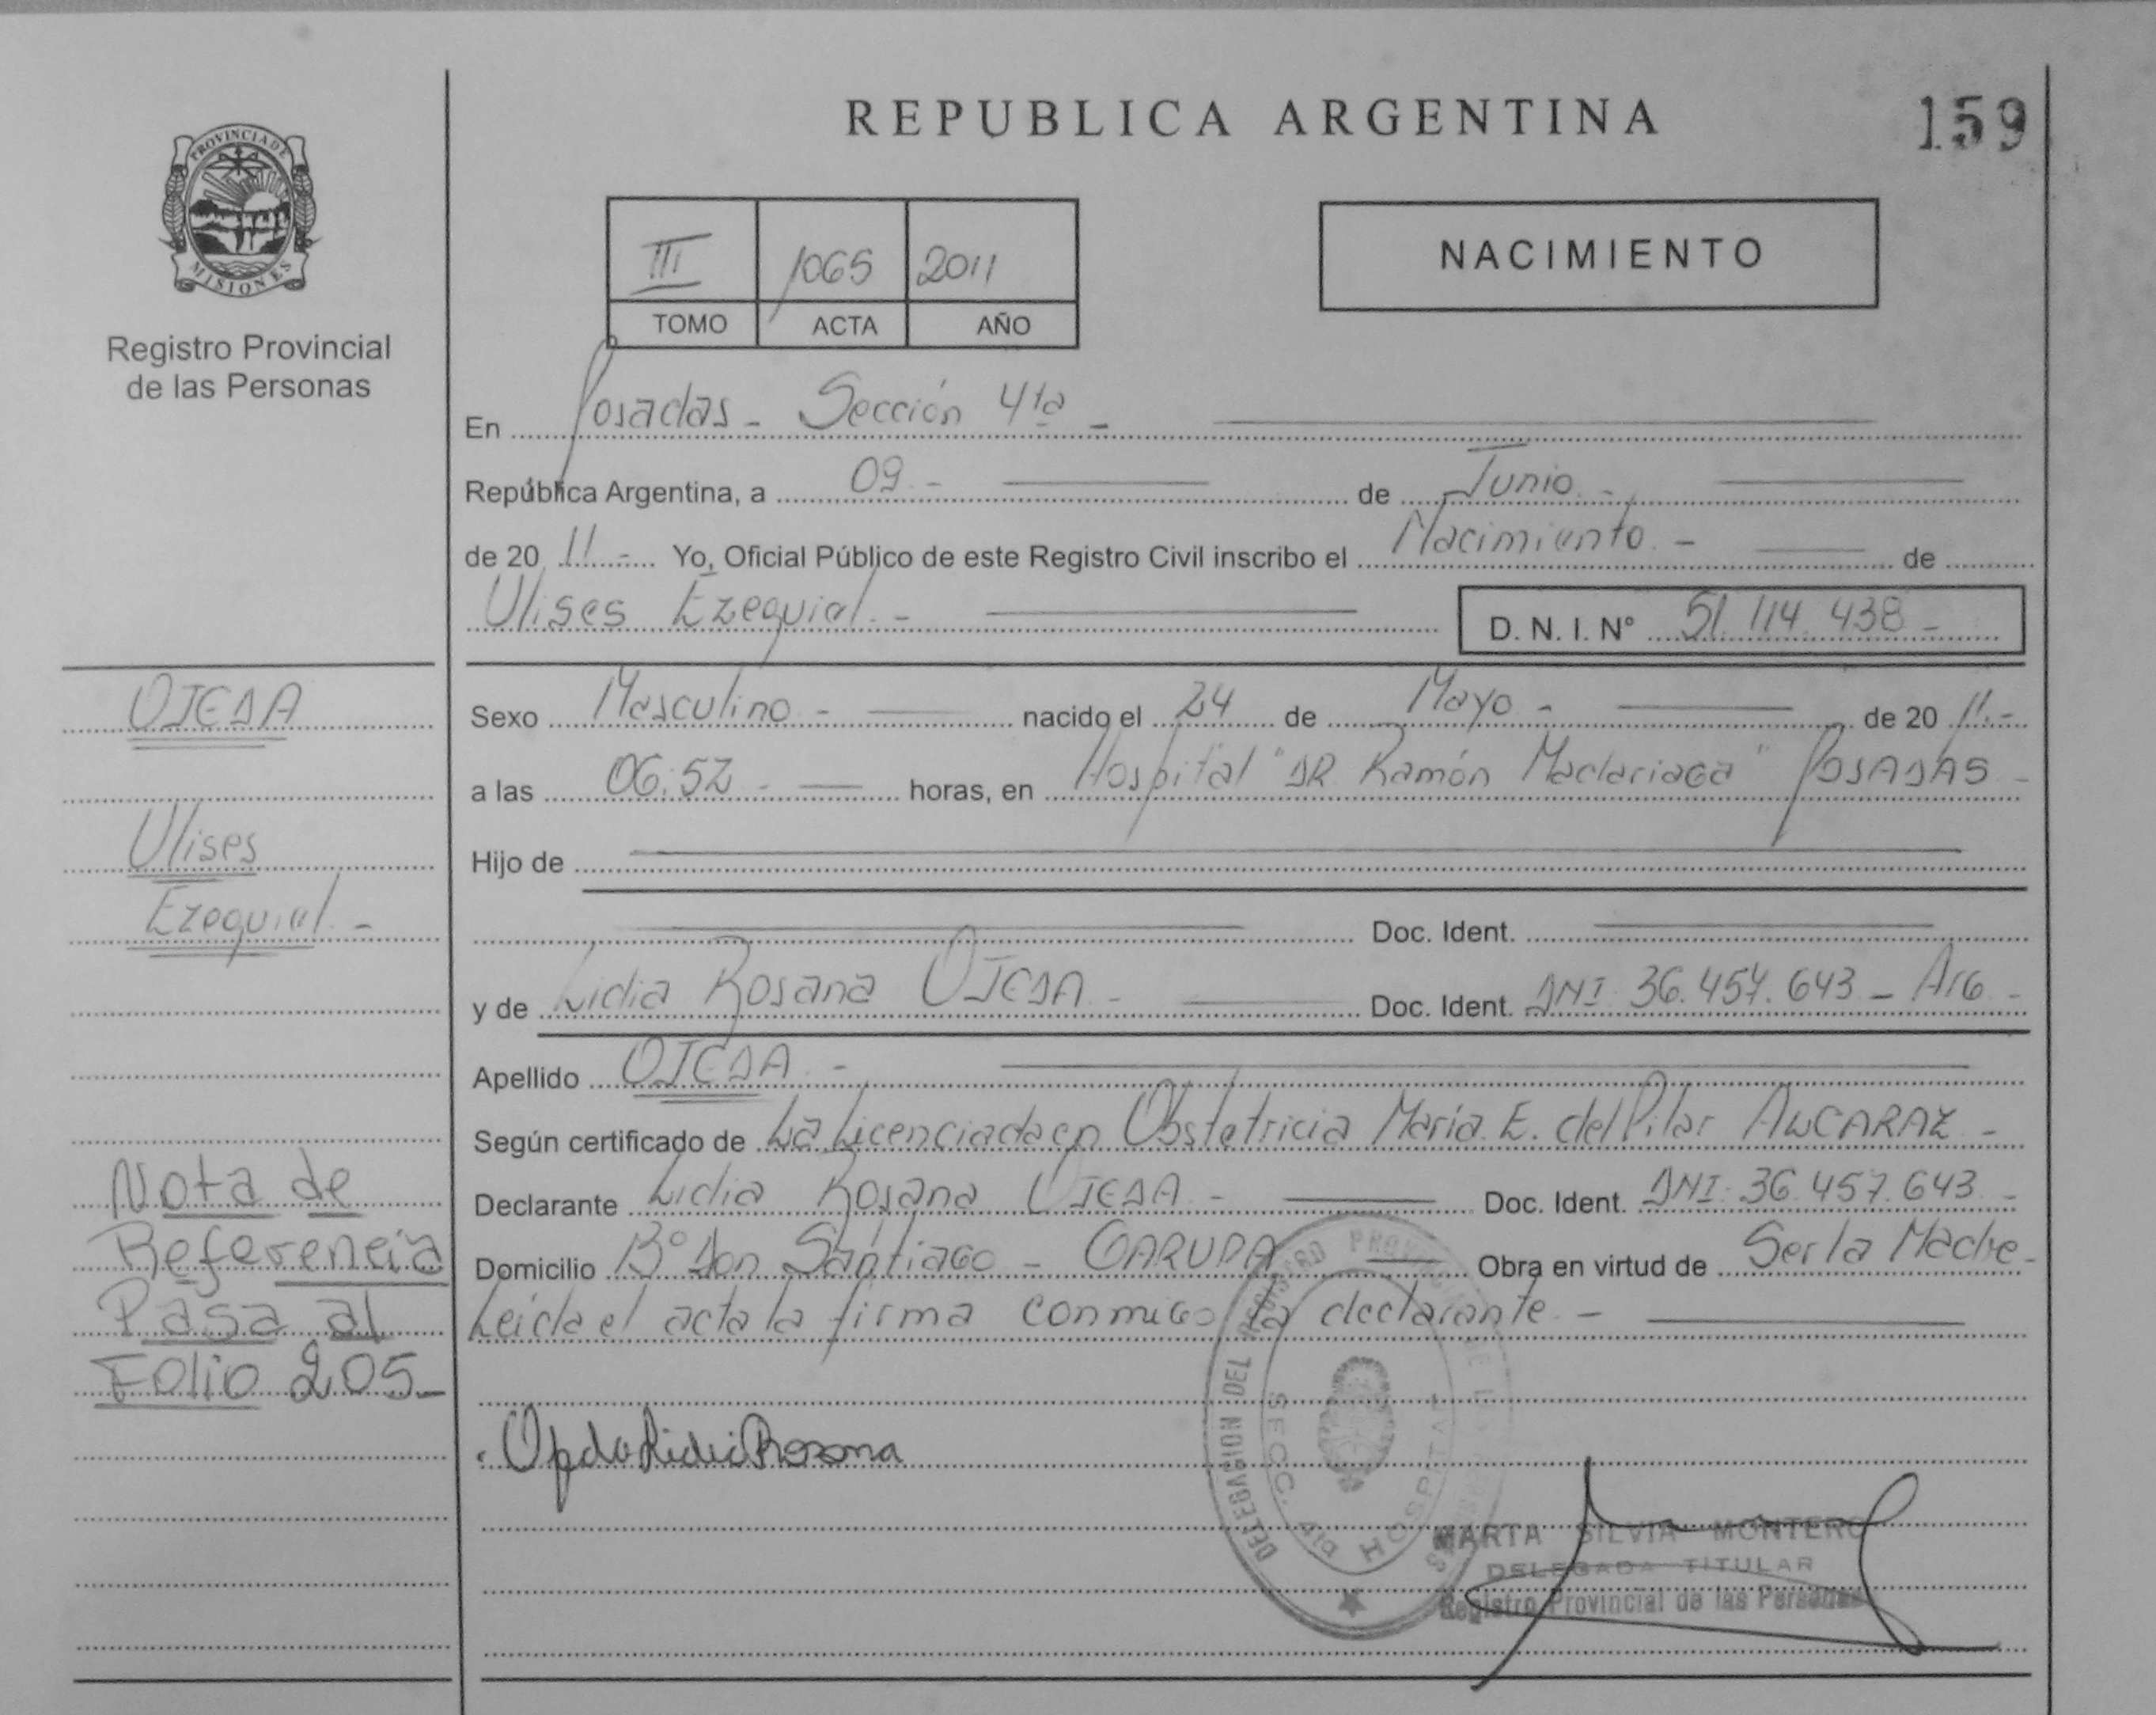 REPUBLICA ARGENTINA
159
PROVINCIA DE
MISIONES
Registro Provincial
de las Personas
III 1065 2011
TOMO ACTA AÑO
NACIMIENTO
En Posadas - Sección 4ta -
República Argentina, a 09 - de Junio -
de 20 11 - Yo, Oficial Público de este Registro Civil inscribo el Nacimiento - de
Ulises Ezequiel - D. N. I. N° 51.114.438 -
Sexo Masculino - nacido el 24 de Mayo - de 20 11 -
a las 06:52 - horas, en Hospital "DR. Ramón Madariaga" POSADAS -
Hijo de
Doc. Ident.
y de Lidia Rosana OJEDA - Doc. Ident. DNI 36.457.643 - Arg -
Apellido OJEDA -
Según certificado de La Licenciada en Obstetricia María E. del Pilar ALCARAZ -
Declarante Lidia Rosana OJEDA - Doc. Ident. DNI: 36.457.643 -
Domicilio B° Don Santiago - GARUPA Obra en virtud de Ser la Madre -
Leida el acta la firma conmigo la declarante -
OJEDA
Ulises
Ezequiel -
Nota de
Referencia
Pasa al
Folio 205 -
Ojeda Lidia Rosana
DELEGACION DEL REGISTRO PROVINCIAL DE LAS PERSONAS
SECC. 4ta HOSPITAL
MARTA SILVIA MONTERO
DELEGADA TITULAR
Registro Provincial de las Personas